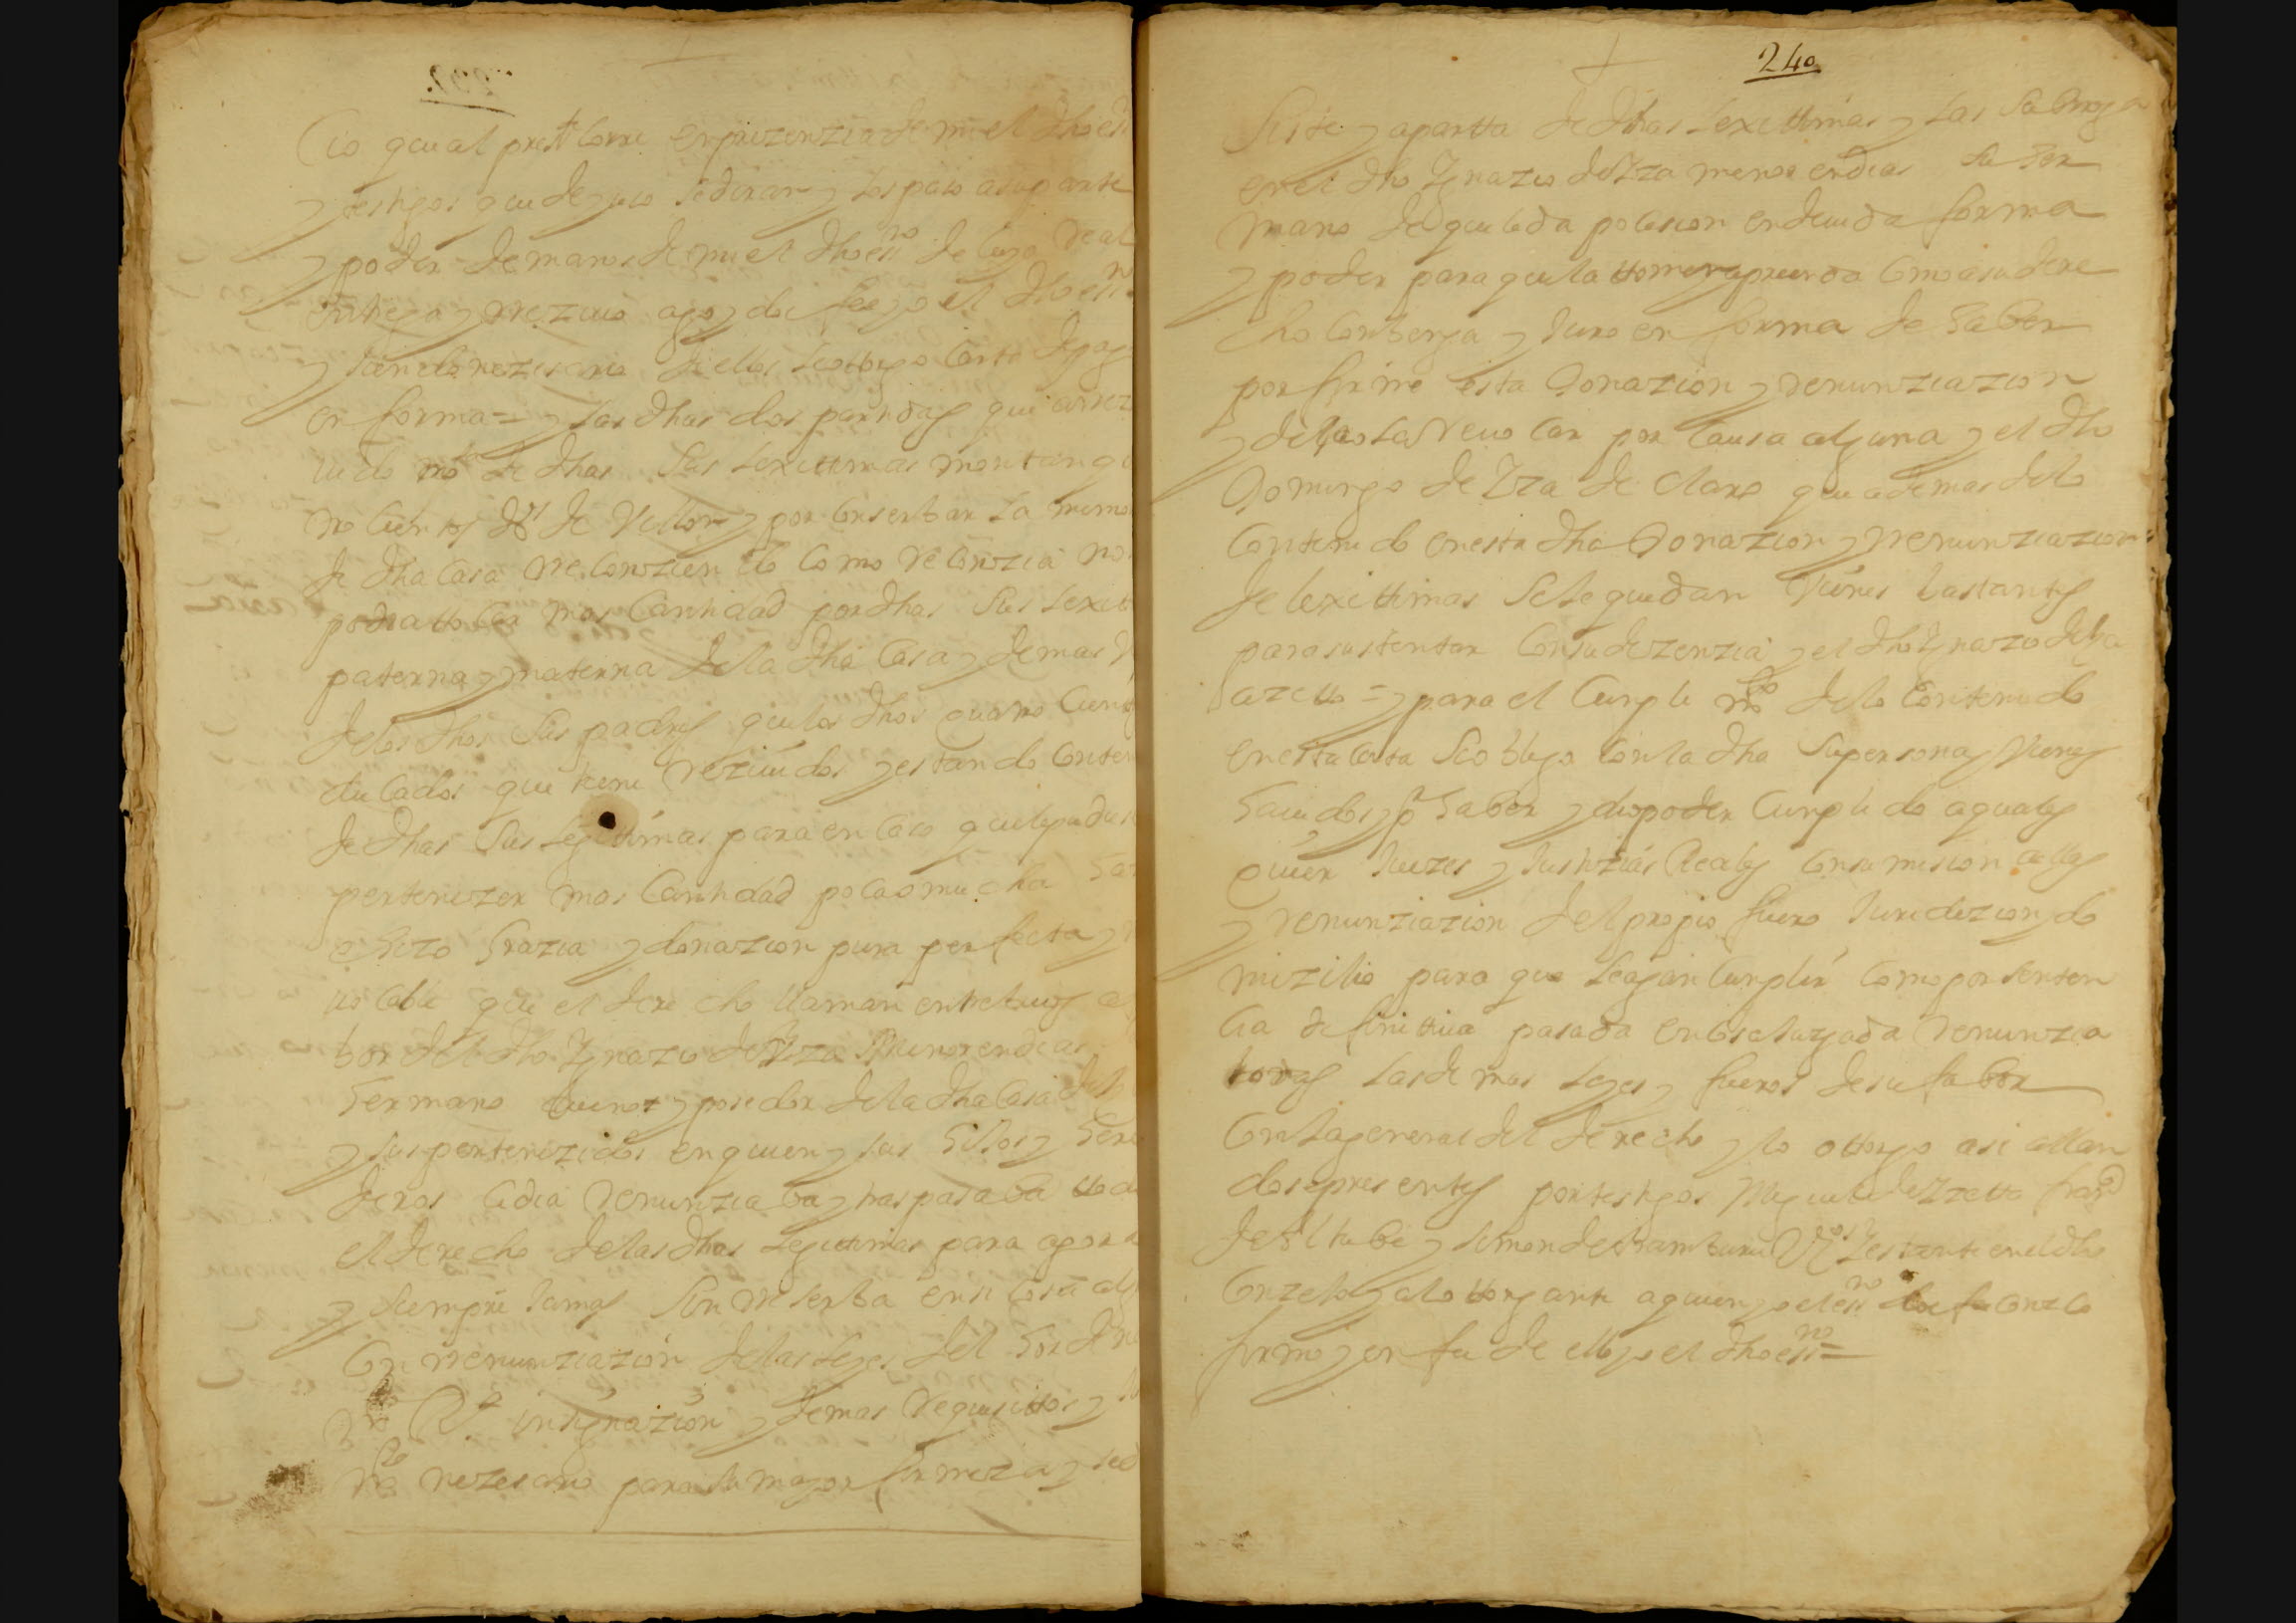 cio q̃ual preste corre en prezenzia de mi el dho ess
y testigos que de yuso se diran y los paso a su parte
y poder de manos de mi el dho essno de cuyo real
entrega y rrezivo ago y doi fee yo el dho essno
y siendo nezesario de ellos le otorgo carta de pag
en forma = y las dhas dos partidas que a rrez
uido de dhas sus lexittimas montan q
tro cientos ds de Vellon y por conserbar la memo
de dha casa rreconoziendo como reconozia no
podia ttocar mas cantidad por dhas sus lexit
paterna y materna de la dha casa y demas
de los dhos sus padres que los dhos quatro cient
ducados que tiene reziuidos y estando conten
de dhas sus legittimas para en caso que le pudies
pertenezer mas cantidad poca o mucha
hizo grazia y donazion pura perfecta y
uocable que el derecho llaman entre biuos a
bor del dho Ygnazio de Yza menor en dias
hermano y posedor de la dha casa de
y sus pertenezidos en quien y sus hijos y here
deros cedia renunziaba y traspasaba ttodo
el derecho de las dhas legittimas para agora
y siempre jamas sin rreserba en si cosa alg
con rrenunziazion de las leyes del
insignazion y demas requisitos y
nezesario para su mayor firmeza y se d
240
siste y apartta de dhas lexittimas y las
en el dho Ygnazio de Yza menor en dias su her
mano de que le da posesion en deuida forma
y poder para que la ttome y aprenda como a su dere
cho conbenga y juro en forma de haber
por firme esta Donazion y renunziazion
y de no la reuocar por causa alguna y el dho
Domingo de Yza declaro que ademas de lo
contenido en esta dha Donazion y rrenunziazion
de lexittimas se le quedan vienes bastantes
para sustentar con su dezenzia y el dho Ygnazio de Yza
azetto = y para el cumpli mto de lo contenido
en esta carta se obligo con la dha su persona y vienes
hauidos y por haber y dio poder cumplido a quales
quier juezes y justizias Reales con sumision a ellas
y renunziazion del propio fuero jurisdizion y do
mizilio para que le agan cumplir como por senten
cia definittiua pasada en cosa juzgada renunzia
ron las demas leyes y fueros de su fabor
con la general del derecho y lo ottorgo asi allan
dose presentes por testigos Miguel de franco
de y simon de vos y estante en el dho
conzejo y al ottorgante a quien yo el essno doi fee conozco
firmo y en fee de ello yo el dho essno =